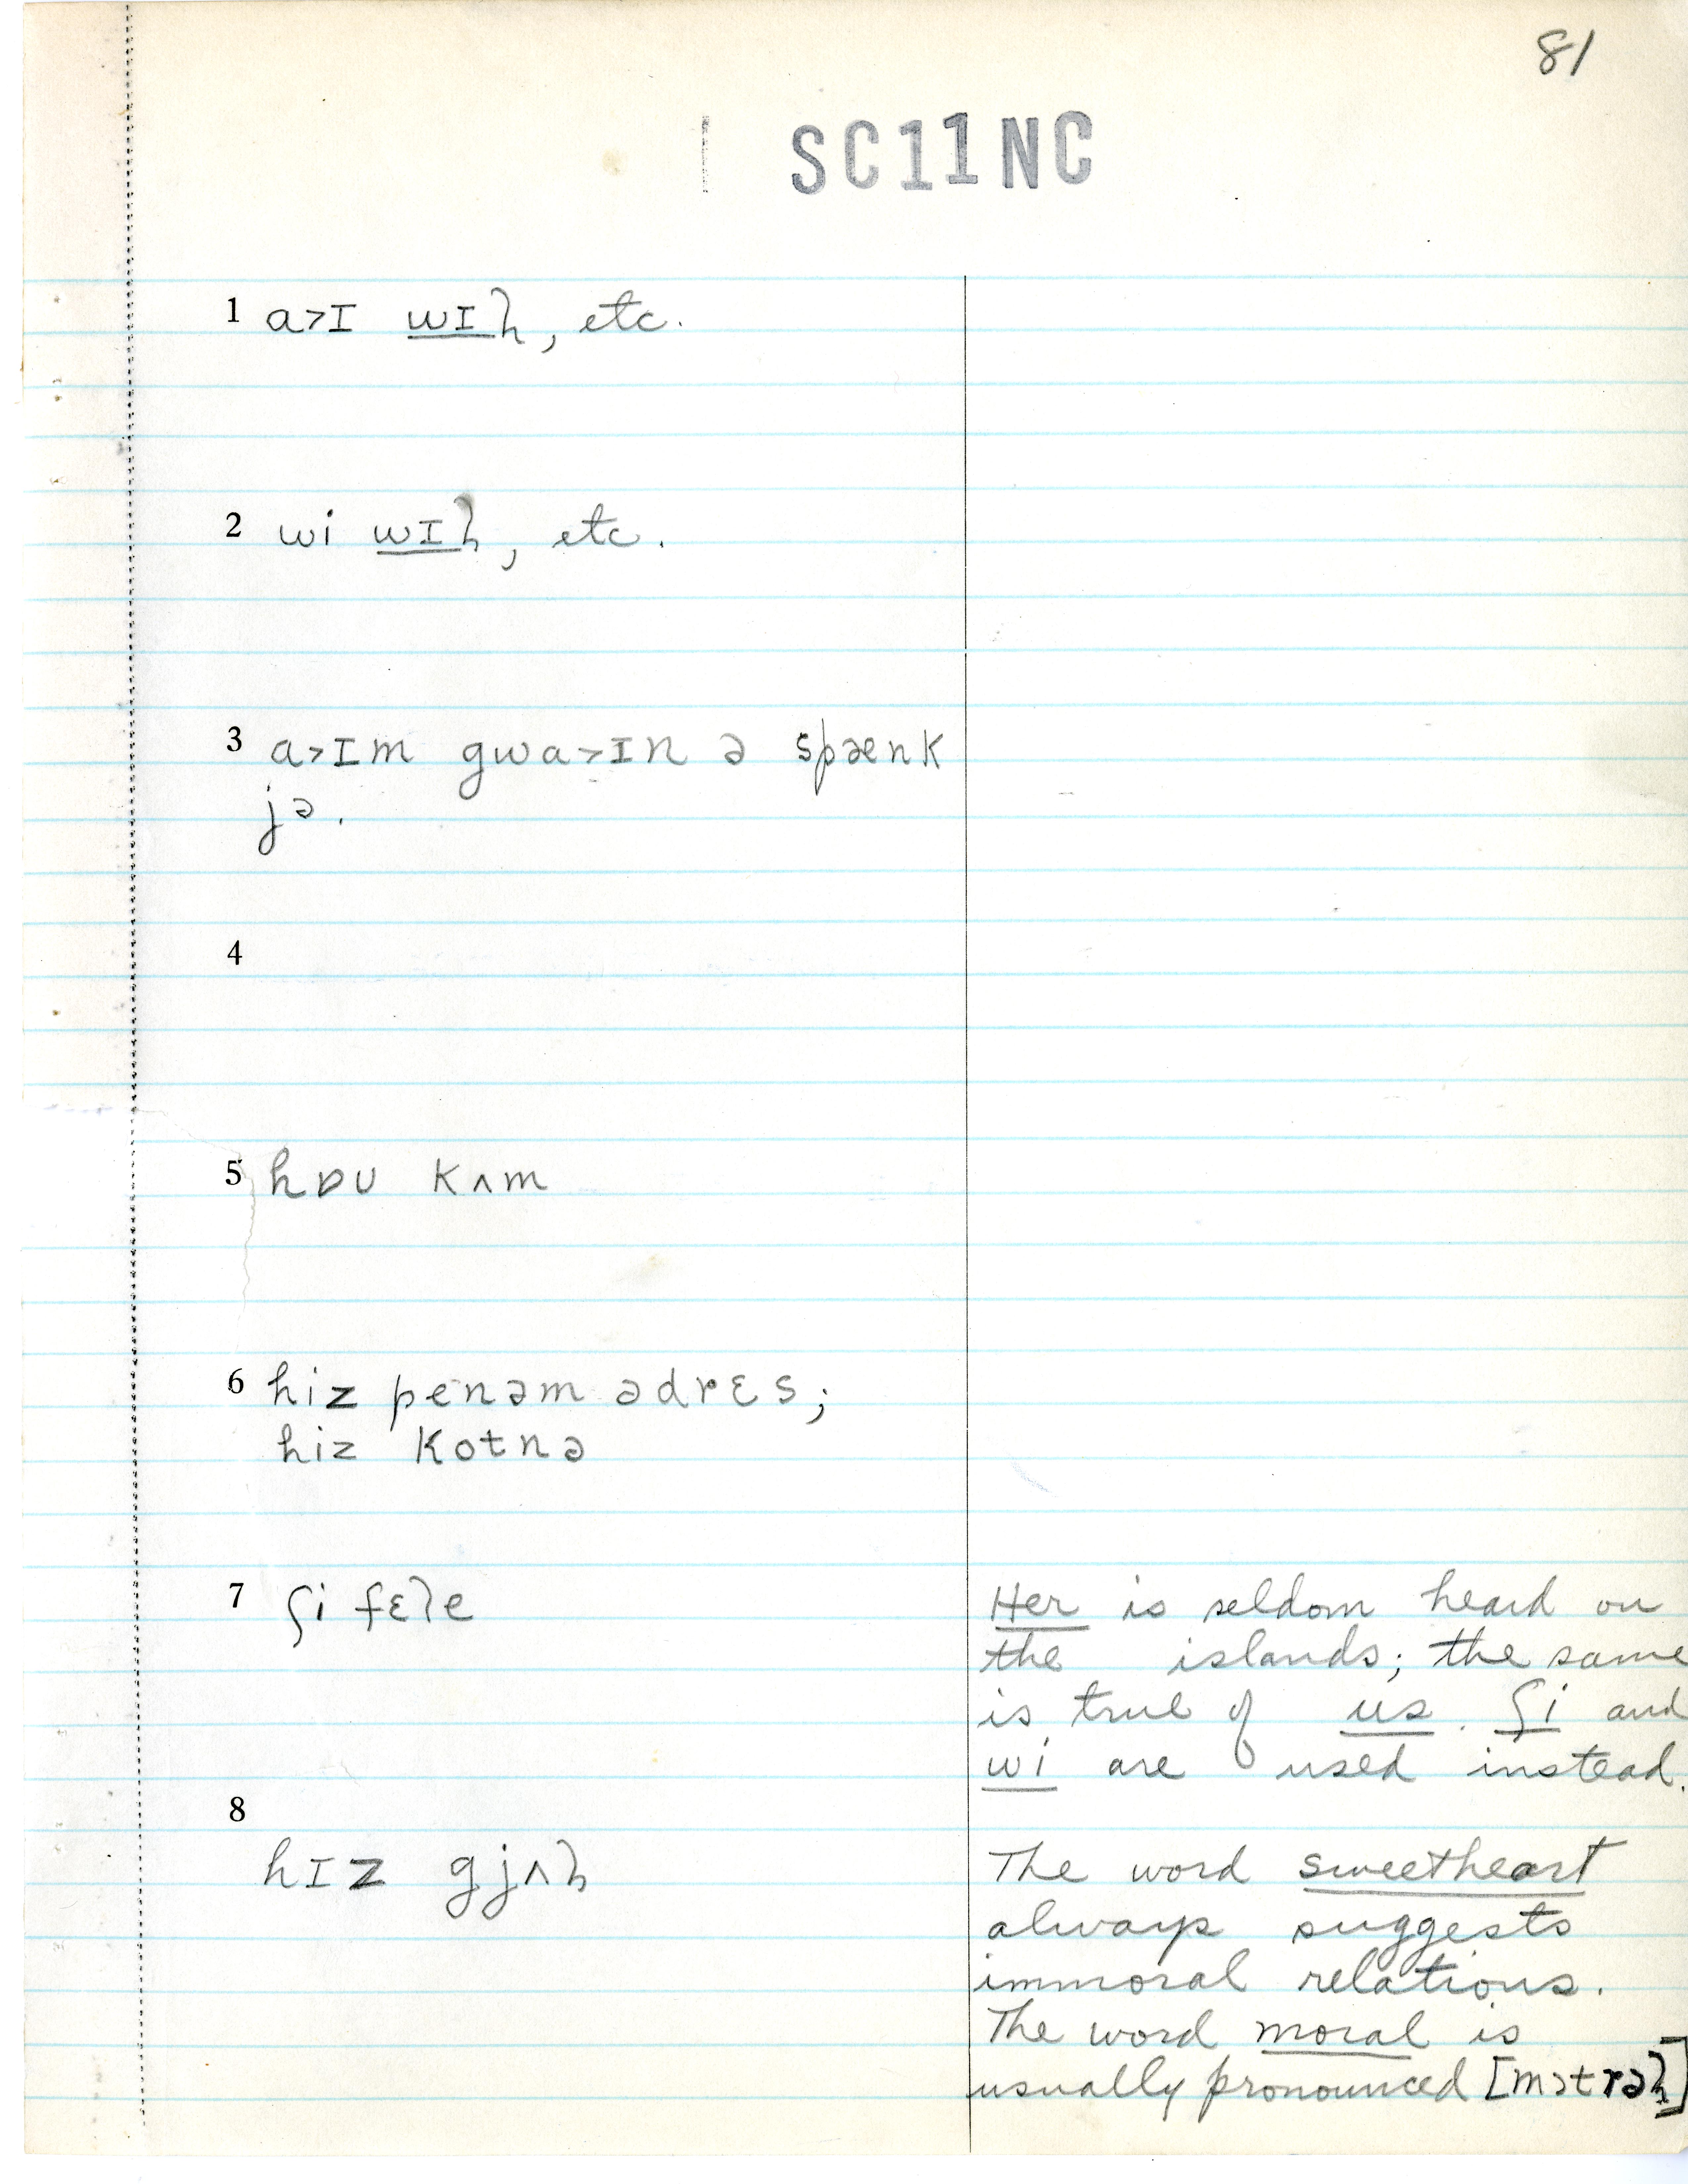 81
SC11NC
1 a>ɪ wɪɫ, etc.
2 wi wɪɫ, etc.
3 a>ɪm gwa>ɪn ə spænk
jə.
4
5 hɒʊ kʌm
6 hiz penəm adrɛs;
hiz kotnə
7 ʃi fɛle
Her is seldom heard on
the islands; the same
is true of us. ʃi and
wi are used instead.
8
hɪz gjʌɫ
The word sweetheart
always suggests
immoral relations.
The word moral is
usually pronounced [mɔtrəɫ]